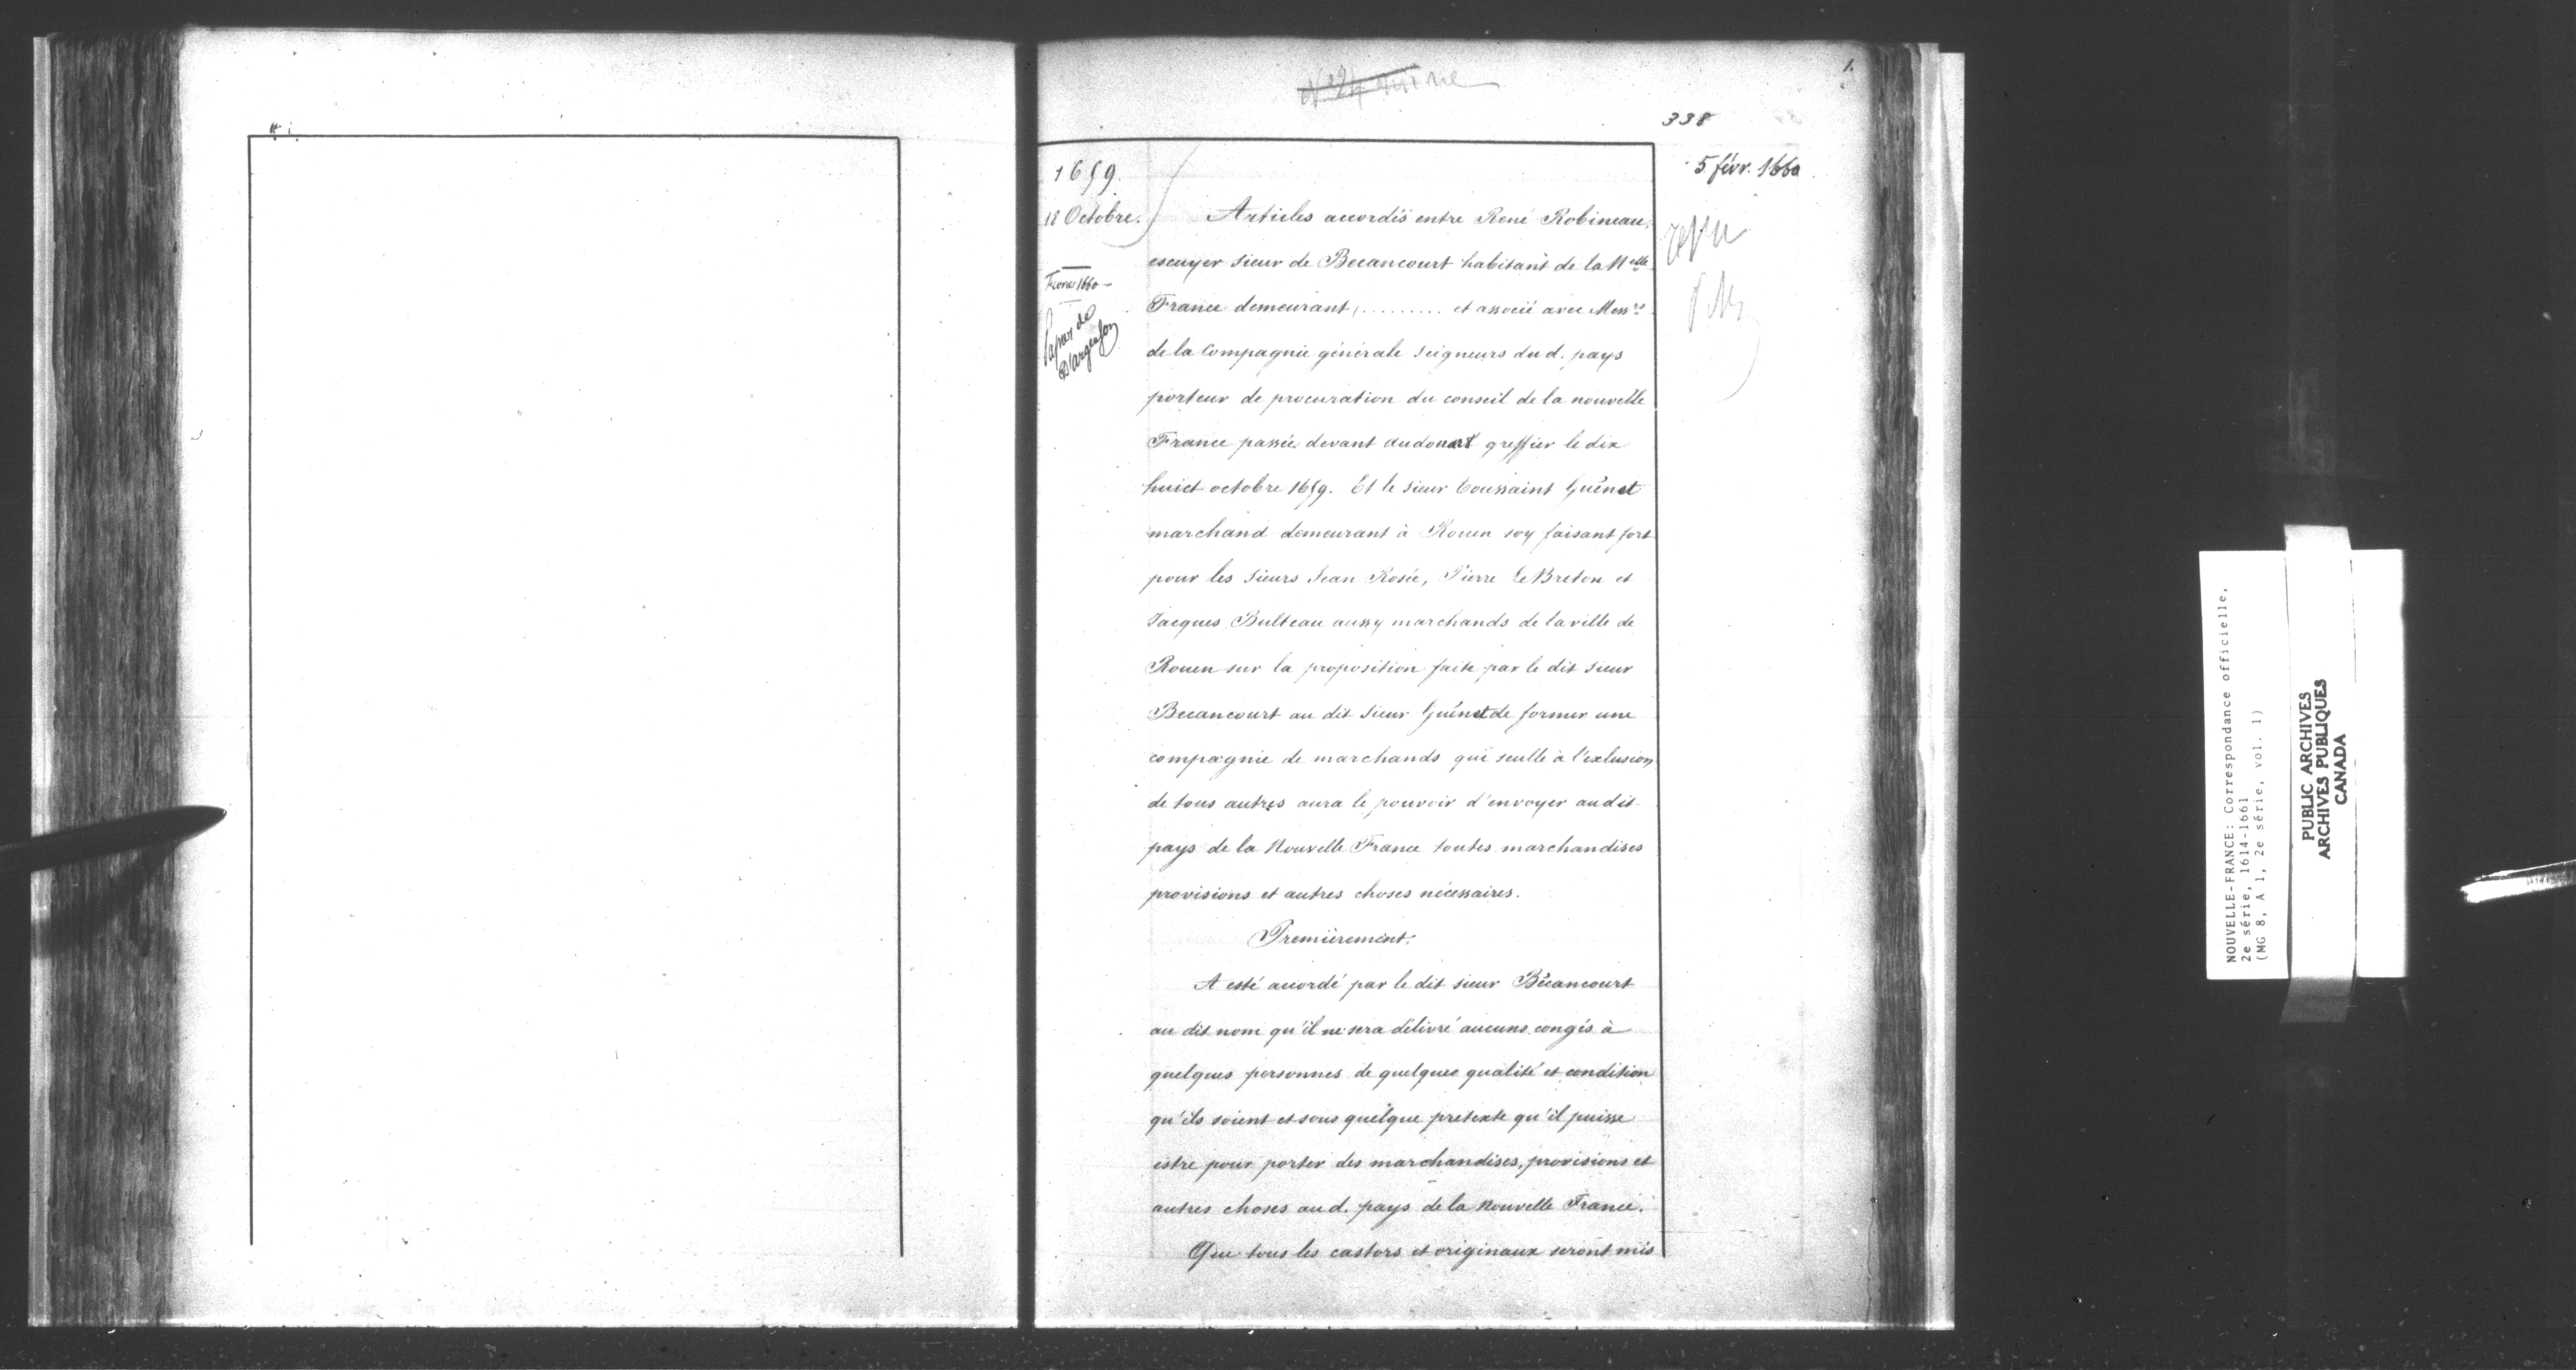 1.
338
5 févr. 1660
1659.
18 Octobre.
Février 1660 -
Papiers de
D'argenson
Articles accordés entre René Robineau,
escuyer sieur de Becancourt habitant de la Nelle
France demeurant .......... et associé avec Messrs
de la Compagnie générale seigneurs du d. pays
porteur de procuration du conseil de la nouvelle
France passée devant audouart greffier le dix
huict octobre 1659. Et le sieur Toussaint Guénet
marchand demeurant à Rouen soy faisant fort
pour les sieurs Jean Rosée, Pierre Le Breton et
Jacques Bulteau aussy marchands de la ville de
Rouen sur la proposition faite par le dit sieur
Becancourt au dit sieur Guénet de former une
compagnie de marchands qui seulle à l'exlusion
de tous autres aura le pouvoir d'envoyer au dit
pays de la Nouvelle France toutes marchandises
provisions et autres choses nécessaires.
Premièrement.
A esté accordé par le dit sieur Bécancourt
au dit nom qu'il ne sera délivré aucuns congés à
quelques personnes de quelque qualité et condition
qu'ils soient et sous quelque pretexte qu'il puisse
estre pour porter des marchandises, provisions et
autres choses au d. pays de la Nouvelle France.
Que tous les castors et originaux seront mis
NOUVELLE-FRANCE: Correspondance officielle,
2e série, 1614-1661
(MG 8, A 1, 2e série, vol. 1)
PUBLIC ARCHIVES
ARCHIVES PUBLIQUES
CANADA